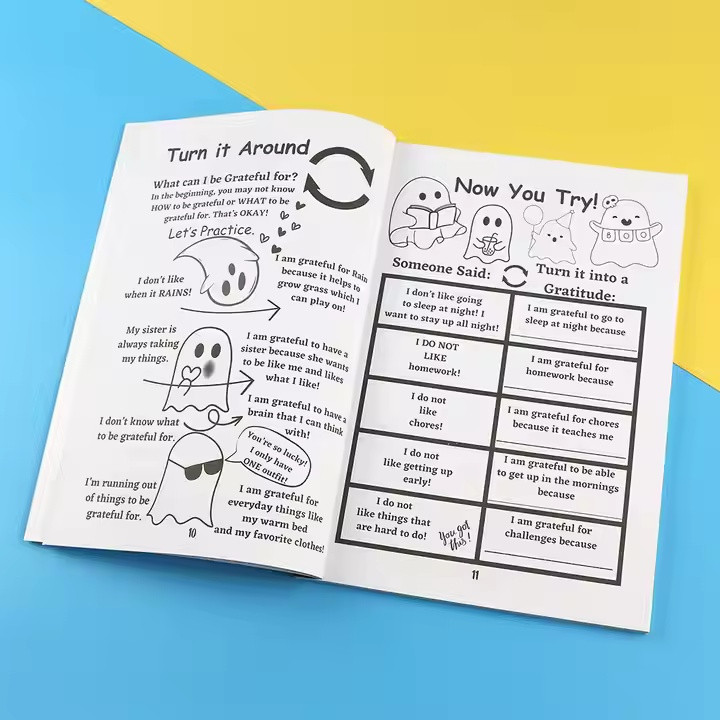 Turn it Around
What can I be Grateful for?
In the beginning, you may not know
HOW to be grateful or WHAT to be
grateful for. That's OKAY!
Let's Practice.
I don't like
when it RAINS!
I am grateful for Rain
because it helps to
grow grass which I
can play on!
My sister is
always taking
my things.
I am grateful to have a
sister because she wants
to be like me and likes
what I like!
I don't know what
to be grateful for.
I am grateful to have a
brain that I can think
with!
You're so lucky!
I only have
ONE outfit!
I'm running out
of things to be
grateful for.
I am grateful for
everyday things like
my warm bed
and my favorite clothes!
10
Now You Try!
BOO
Someone Said:
Turn it into a
Gratitude:
I don't like going
to sleep at night! I
want to stay up all night!
I am grateful to go to
sleep at night because
I DO NOT
LIKE
homework!
I am grateful for
homework because
I do not
like
chores!
I am grateful for chores
because it teaches me
I do
not like getting up
early!
I am grateful to be able
to get up in the mornings
because
I do not
like things that
are hard to do!
You got
this!
I am grateful for
challenges because
11